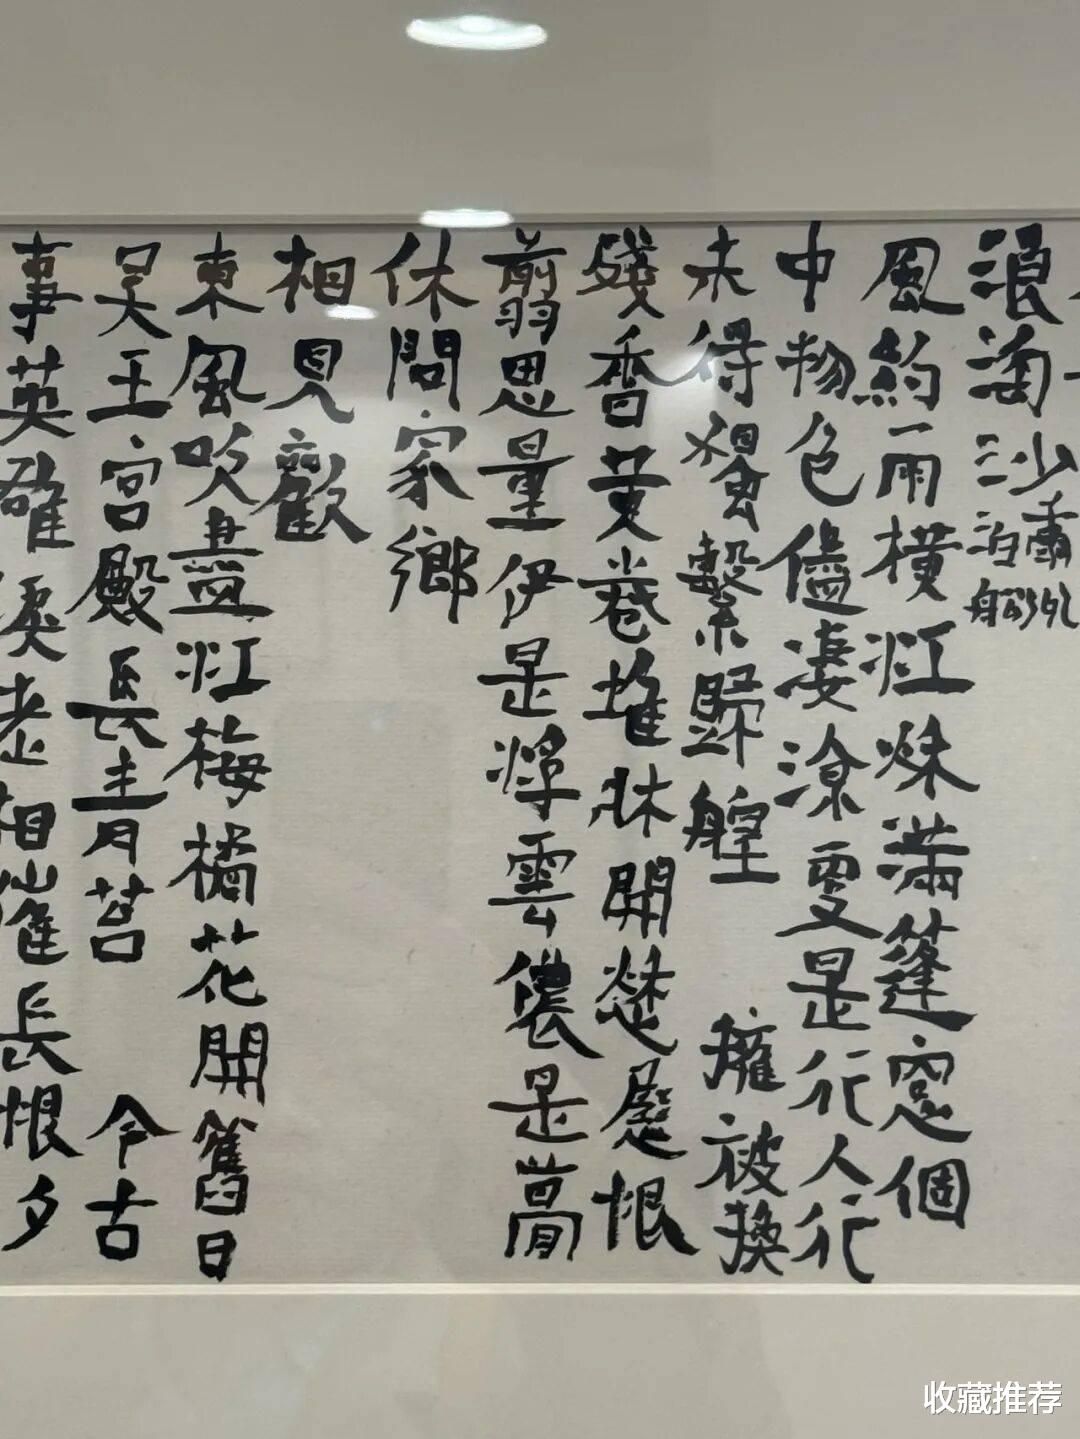 浪淘沙 泊船
風約雨橫江秌滿篷窓個
中物色儘淒涼更是行人行
未得獨繫歸艎 擁被換
殘香黃卷堆牀開愁展恨
翦思量伊是浮雲儂是夢
休問家鄉
相見歡
東風吹盡江梅橘花開舊日
吳王宮殿長青苔 今古
事英雄淚老相催長恨夕
收藏推荐